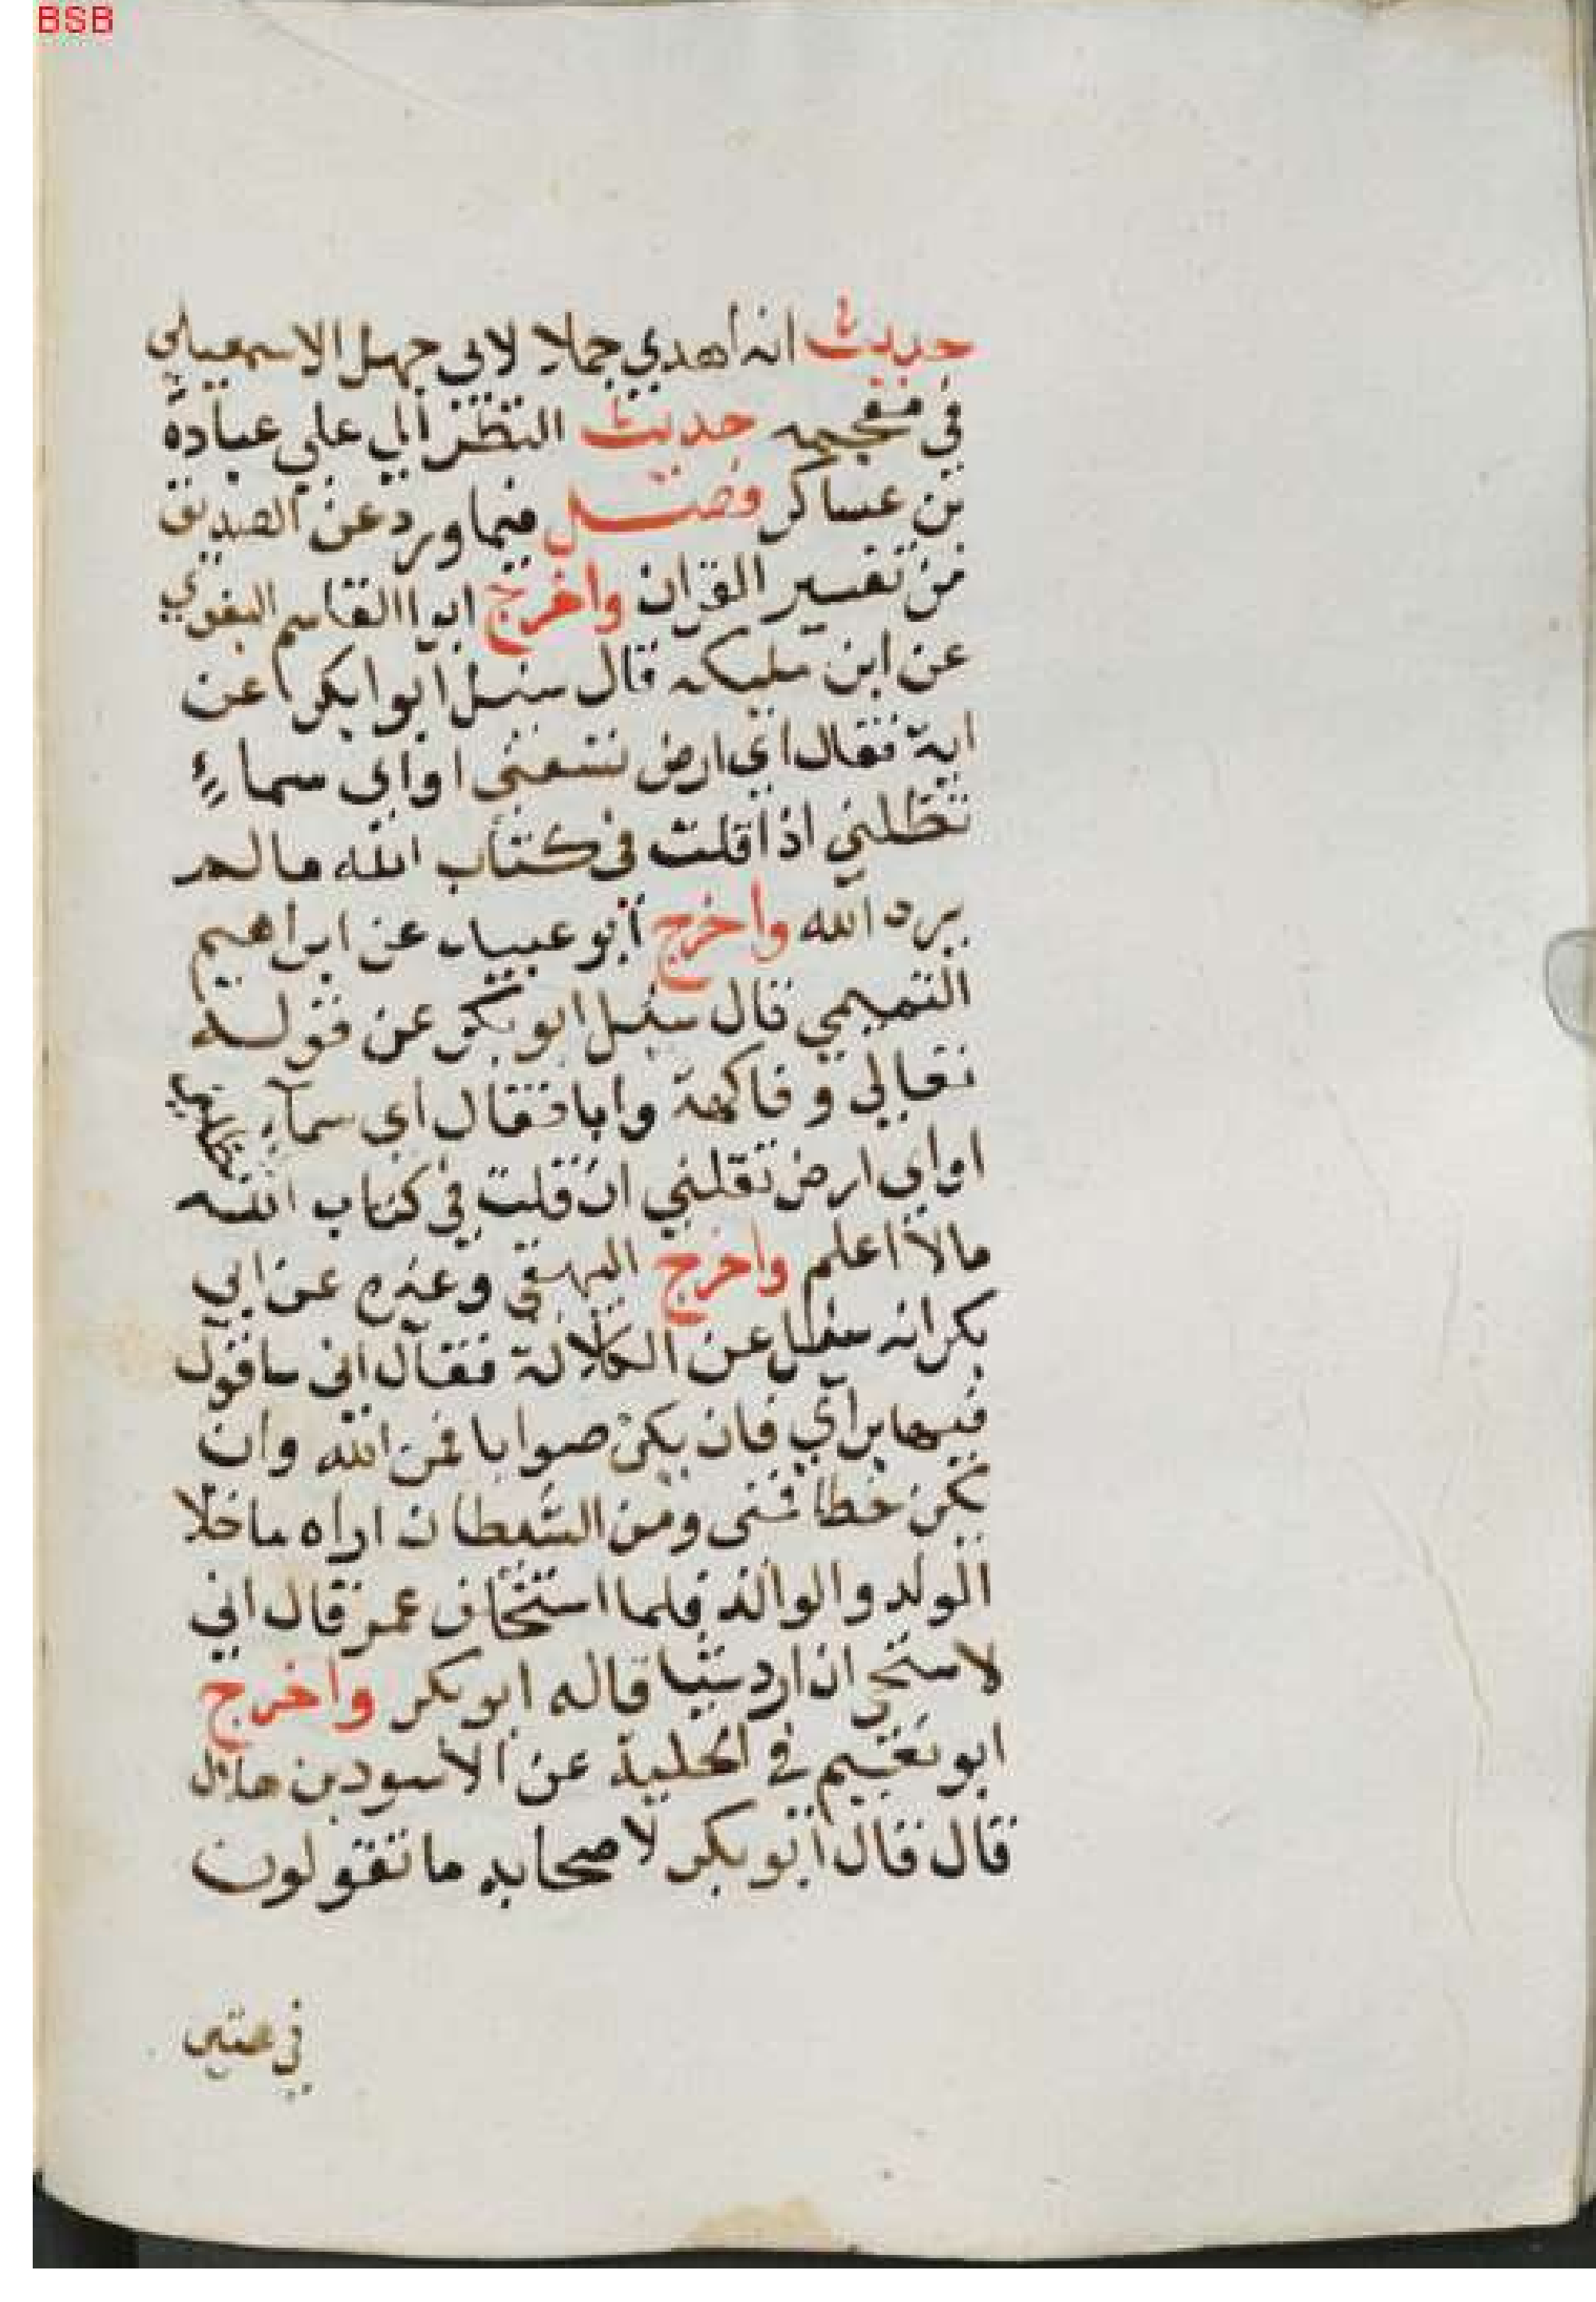 BSB
حديث انه أهدي جملا لابي جهل الاسمعيلي
في معجمه حديث النظر الي علي عبادة
بن عساكر فصل فيما ورد عن الصديق
من تفسير القران واخرج ابوا القاسم البغوي
عن ابن مليكه قال سئل ابوا بكر عن
اية فقال اي ارض تسعني او اي سماء
تظلني اذا قلت في كتاب الله ما لم
يرد الله واخرج أبو عبيد عن ابراهيم
التميمي قال سئل ابو بكر عن قوله
تعالي وفاكهة وابا فقال اي سماء تظلني
او اي ارض تقلني ان قلت في كتاب الله
مالا اعلم واخرج البيهقي وغيره عن ابي
بكر انه سئل عن الكلالة فقال اني ساقول
فيها برأي فان يكن صوابا فمن الله وان
يكن خطا فمني ومن الشيطان اراه ما خلا
الولد والوالد فلما استخلف عمر قال اني
لاستحي ان ارد شيا قاله ابو بكر واخرج
ابو نعيم في الحلية عن الأسود بن هلال
قال قال ابو بكر لاصحابه ما تقولون
في هتين